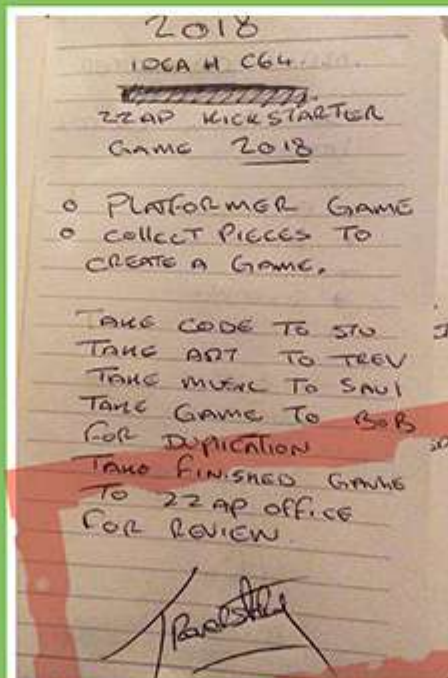 2018
IDEA H C64
ZZAP KICKSTARTER
GAME 2018
o PLATFORMER GAME
o COLLECT PIECES TO
CREATE A GAME.
TAKE CODE TO STU
TAKE ART TO TREV
TAKE MUSIC TO SAUL
TAKE GAME TO BOB
FOR DUPLICATION
TAKE FINISHED GAME
TO ZZAP OFFICE
FOR REVIEW.